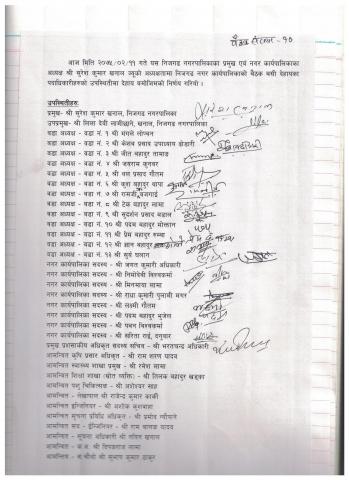 बैठक संख्या - १०
आज मिति २०७५/०२/११ गते यस निजगढ नगरपालिकाका प्रमुख एवं नगर कार्यपालिकाका
अध्यक्ष श्री सुरेश कुमार खनाल ज्यूको अध्यक्षतामा निजगढ नगर कार्यपालिकाको बैठक बसी देहायका
पदाधिकारीहरुको उपस्थितीमा देहाय बमोजिमको निर्णय गरियो ।
उपस्थितीहरुः
प्रमुख- श्री सुरेश कुमार खनाल, निजगढ नगरपालिका
उपप्रमुख- श्री लिला देवी लामीछाने, खनाल, निजगढ नगरपालिका
वडा अध्यक्ष - वडा नं. १ श्री मंगले लोप्चन
वडा अध्यक्ष - वडा नं. २ श्री केशब प्रसाद उपाध्याय ढोडारी
वडा अध्यक्ष - वडा नं. ३ श्री जीत बहादुर तामाङ
वडा अध्यक्ष - वडा नं. ४ श्री जयराम कुनवर
वडा अध्यक्ष - वडा नं. ५ श्री यज्ञ प्रसाद गौतम
वडा अध्यक्ष - वडा नं. ६ श्री बहादुर थापा
वडा अध्यक्ष - वडा नं. ७ श्री
वडा अध्यक्ष - वडा नं. ८ श्री टेक बहादुर लामा
वडा अध्यक्ष - वडा नं. ९ श्री सुदर्शन प्रसाद मडाल
वडा अध्यक्ष - वडा नं. १० श्री पदम बहादुर मोक्तान
वडा अध्यक्ष - वडा नं. ११ श्री प्रेम बहादुर बम्बा
वडा अध्यक्ष - वडा नं. १२ श्री ज्ञान बहादुर
वडा अध्यक्ष - वडा नं. १३ श्री सुर्य घलान
नगर कार्यपालिका सदस्य - श्री जगत कुमारी अधिकारी
नगर कार्यपालिका सदस्य - श्री निमोदेवी विश्वकर्मा
नगर कार्यपालिका सदस्य - श्री मिनमाया लामा
नगर कार्यपालिका सदस्य - श्री राधा कुमारी पुलामी मगर
नगर कार्यपालिका सदस्य - श्री लक्ष्मी गौतम
नगर कार्यपालिका सदस्य - श्री पदम बहादुर भुजेल
नगर कार्यपालिका सदस्य - श्री पवन विश्वकर्मा
नगर कार्यपालिका सदस्य - श्री सरिता राई, दनुवार
प्रमुख प्रशासकीय अधिकृत सदस्य सचिव - श्री भरतचन्द्र अधिकारी
आमन्त्रित कृषि प्रसार अधिकृत - श्री राम शरण यादव
आमन्त्रित स्वास्थ्य शाखा प्रमुख - श्री रमेश लामा
आमन्त्रित शिक्षा शाखा (स्रोत व्यक्ति) - श्री तिलक बहादुर खड्का
आमन्त्रित पशु चिकित्सक - श्री अशेश्वर साह
आमन्त्रित - लेखापाल श्री राजेन्द्र कुमार कार्की
आमन्त्रित इन्जिनियर - श्री अशोक कुशवाहा
आमन्त्रित सूचना प्रविधि अधिकृत - श्री प्रमोद न्यौपाने
आमन्त्रित सव - ईन्जिनियर - श्री राम बालक यादव
आमन्त्रित - सूचना अधिकारी श्री नविन खनाल
आमन्त्रित - क.अ. श्री दिपकराज लामा
आमन्त्रित - श्री सुभाष कुमार ठाकुर